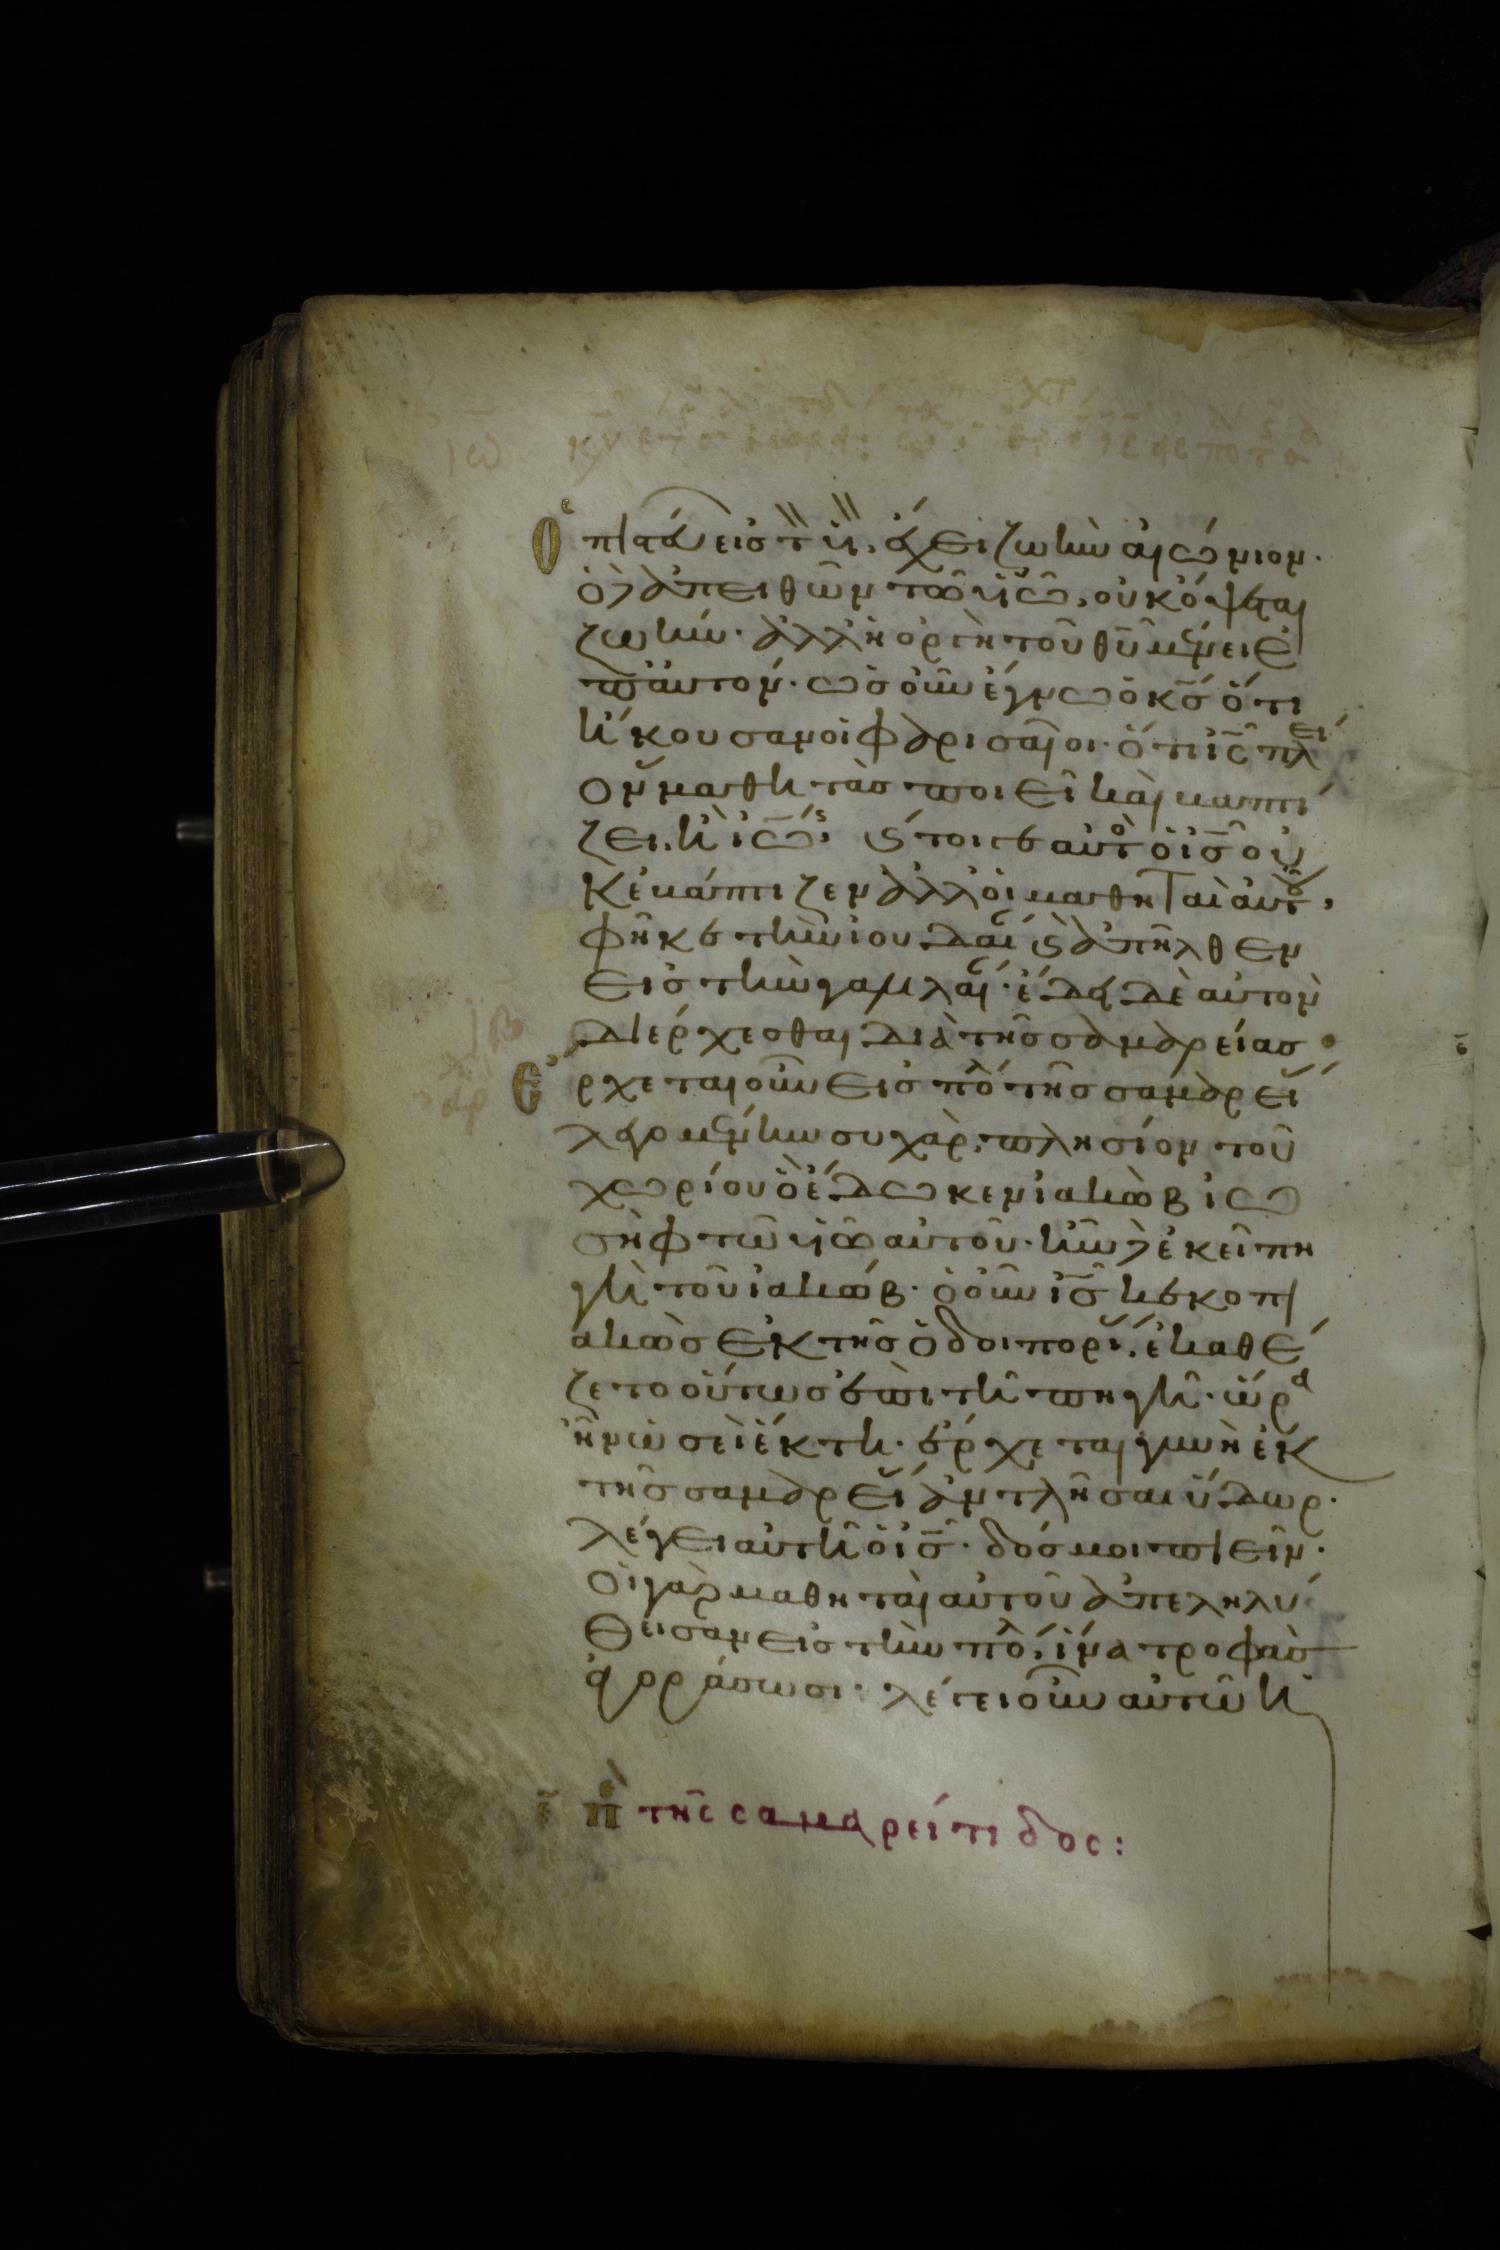 Ὁ πιστεύων εἰς τὸν ὑν, ἔχει ζωὴν αἰώνιον·
ὁ δὲ ἀπειθῶν τῶ υἱῶ, οὐκ ὄψεται
ζωήν· ἀλλ' ἡ ὀργὴ τοῦ θῦ μένει ἐ
π' αὐτόν· ὡς οὖν ἔγνω ὁ κς ὅτι
ἤκουσαν οἱ φαρισαῖοι· ὅτι ις πλεί
ονας μαθητὰς ποιεῖ καὶ βαπτί
ζει ἢ ἰω, καίτοιγε αὐτὸς ὁ ις οὐ
κ ἐβάπτιζεν ἀλλ' οἱ μαθηταὶ αὐτοῦ,
ἀφῆκε τὴν ἰουδαί καὶ ἀπῆλθεν
εἰς τὴν γαλιλαί· ἔδει δὲ αὐτὸν
διέρχεσθαι διὰ τῆς σαμαρείας
Ἔρχεται οὖν εἰς πό τῆς σαμαρεί
λεγομένην συχὰρ, πλησίον τοῦ
χωρίου ὃ ἔδωκεν ἰακὼβ ἰω
σὴφ τῶ υἱῶ αὐτοῦ· ἦν δὲ ἐκεῖ πη
γὴ τοῦ ἰακώβ· ὁ οὖν ις κεκοπι
ακὼς ἐκ τῆς ὁδοιπορί, ἐκαθέ
ζετο οὕτως ἐπὶ τῆ πηγῆ· ὥρα
ἦν ὡσεὶ ἕκτη· ἔρχεται γυνὴ ἐκ
τῆς σαμαρεί ἀντλῆσαι ὕδωρ·
λέγει αὐτῆ ὁ ις· δός μοι πιεῖν·
οἱ γὰρ μαθηταὶ αὐτοῦ ἀπεληλύ
θεισαν εἰς τὴν πό, ἵνα τροφὰς
ἀγοράσωσι· λέγει οὖν αὐτῶ ἡ
ε πε τῆς σαμαρείτιδος: